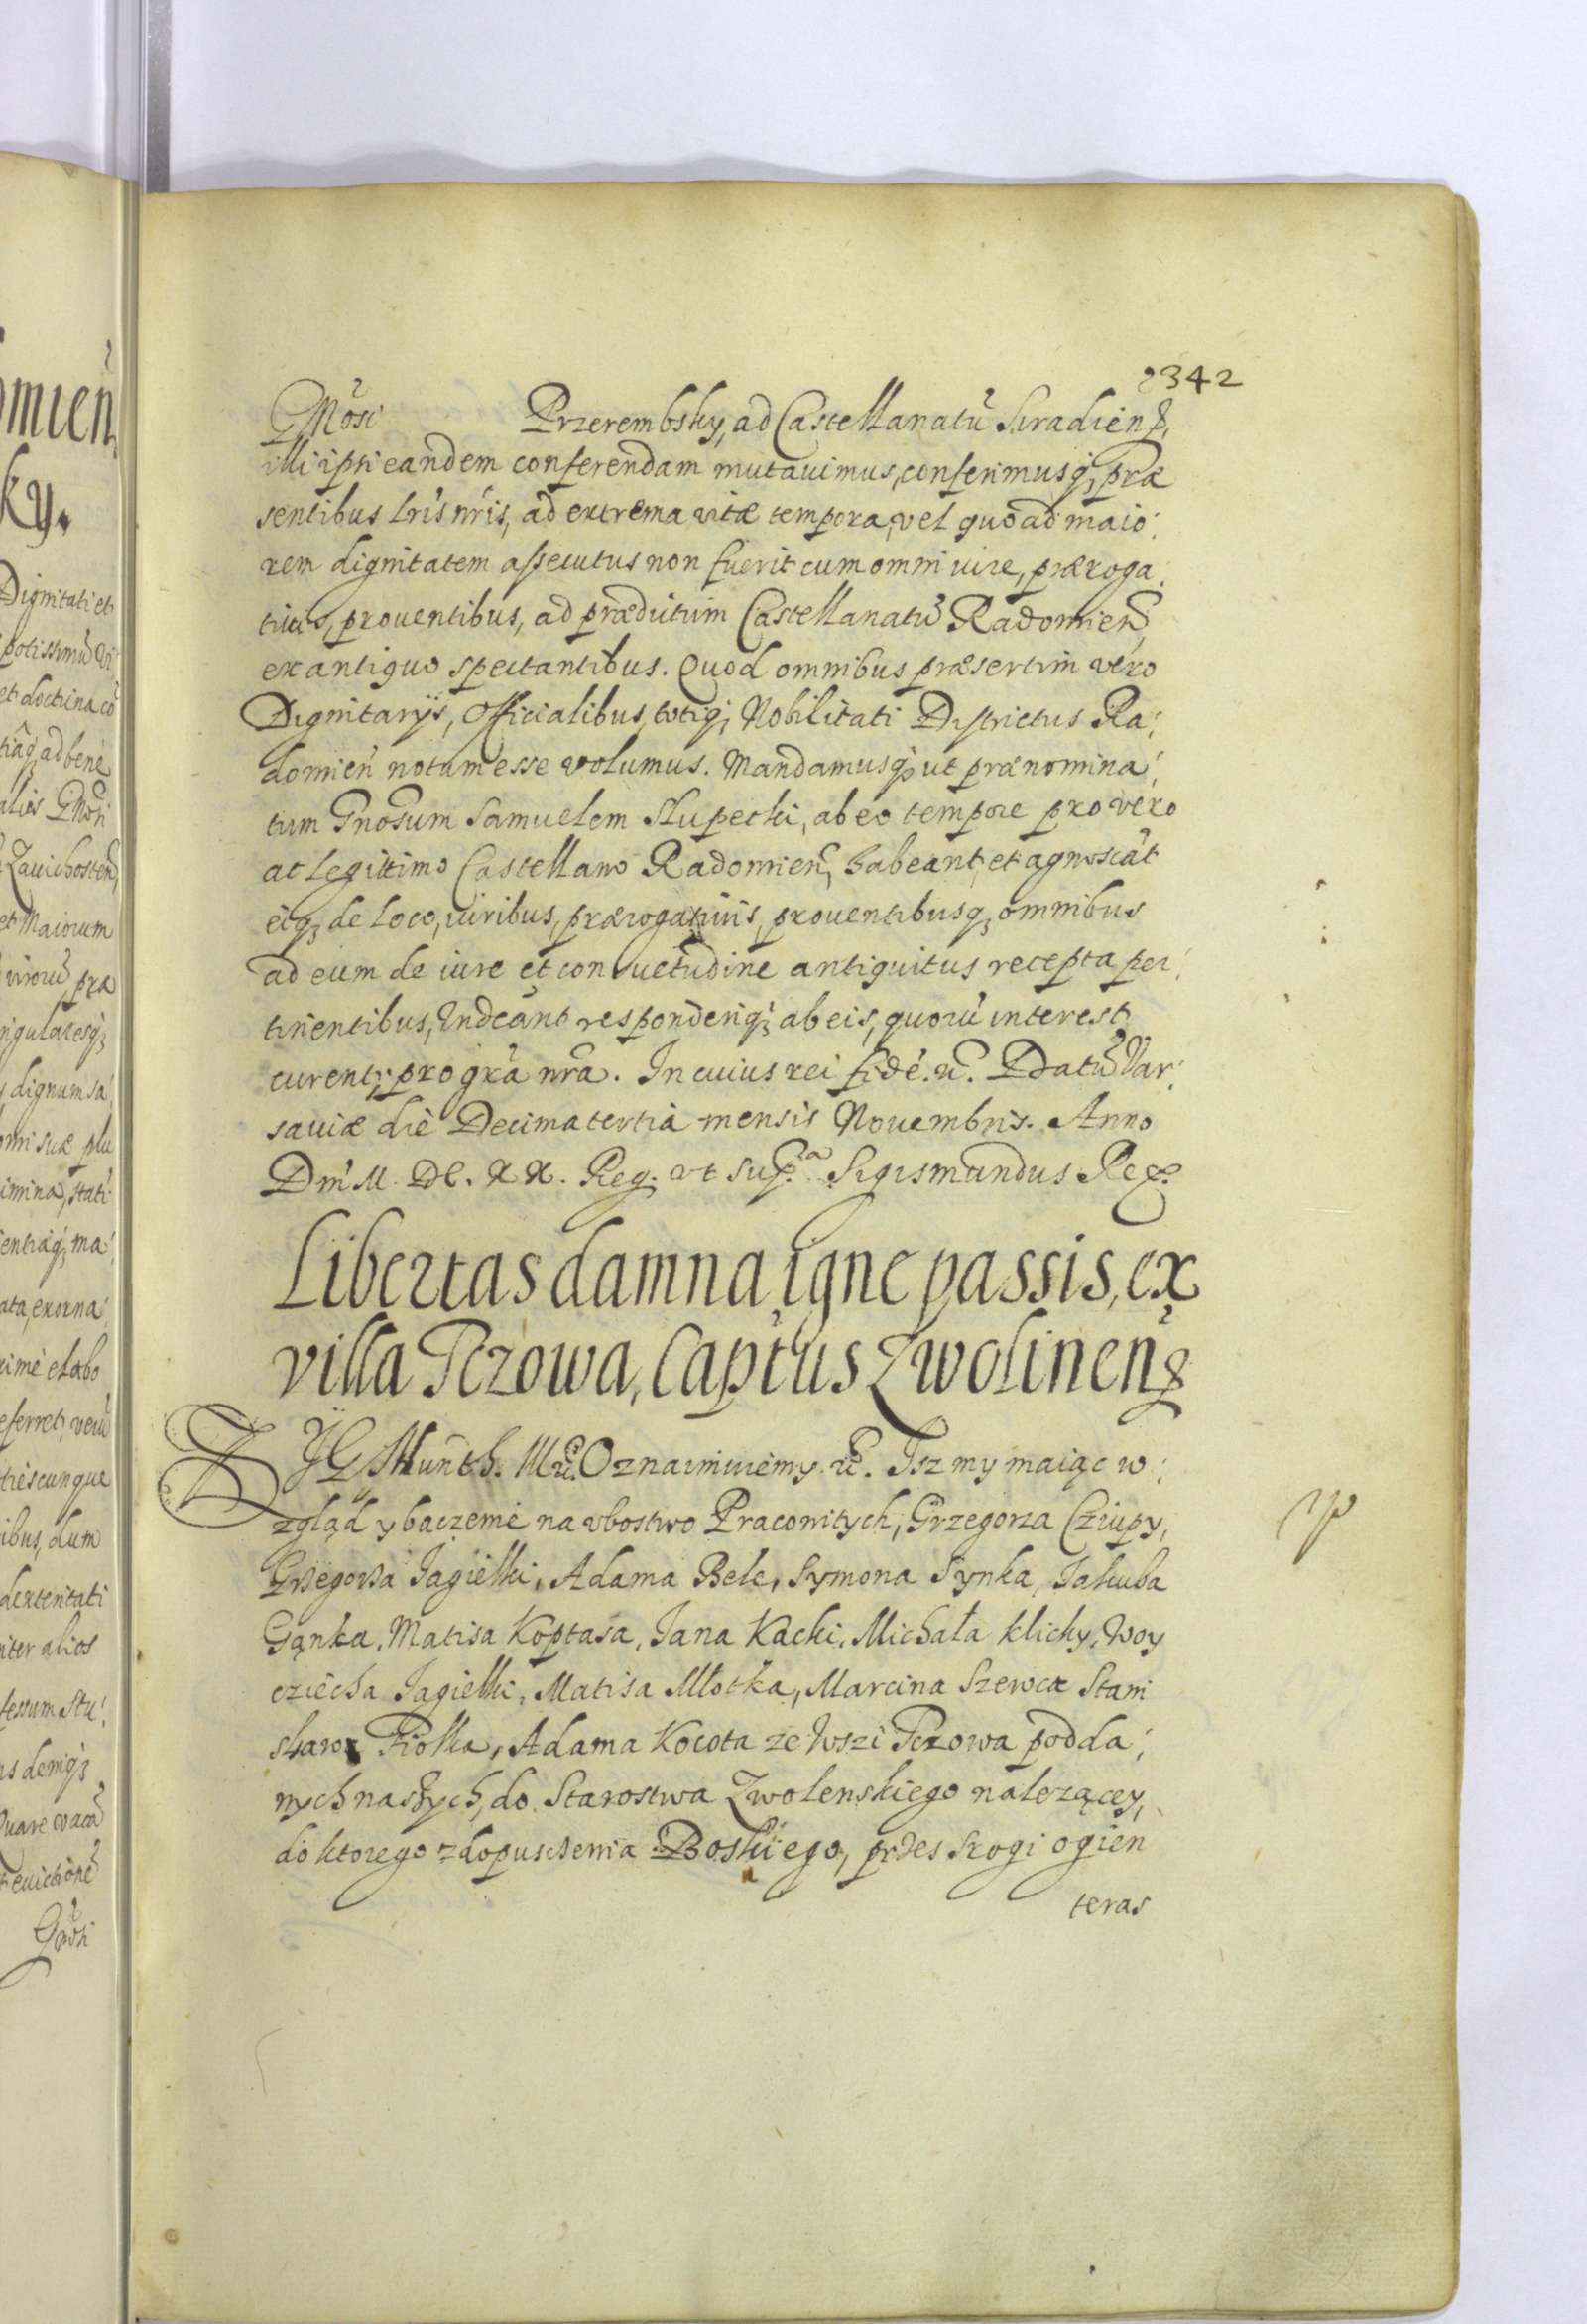 2342
GMosi Przerembsky, ad Castellanatū Siradien̄,
illi ipsi eandem conferendam mutauimus, conferimusq, præ
sentibus lr̄is nr̄is, ad extrema vitæ tempora, vel quo ad maio:
rem dignitatem assecutus non fuerit cum omni iure, præroga:
tiuis, prouentibus, ad prædictum Castellanatū Radomien̄,
ex antiquo spectantibus. Quod omnibus præsertim vero
Dignitarÿs, Officialibus, totiq, Nobilitati Districtus Ra:
domien̄ notum esse volumus. Mandamusq, ut prænomina:
tum Gnosum Samuelem Slupecki, ab eo tempore pro vero
ac legittimo Castellano Radomien̄, habeant, et agnoscāt
eiq, de loco, iuribus, prærogatiuis, prouentibusq, omnibus
ad eum de iure et consuetudine antiquitus recepta per:
tinentibus, Indeant responderiq, ab eis, quorū interest
curent, pro gr̄a nr̄a. In cuius rei fidē. Datū Var:
sauiæ die Decima tertia mensis Nouembris. Anno
Dni M. DC. XX. Reg. vt sup.a Sigismundus Rex.
Libertas damna igne passis, ex
villa Tczowa, Captus Zwolinen̄
ZYGMunth. Oznaimuiemy. Isz my maiąc w:
zgląd y baczemie na vbostwo Pracowitych, Grzegorza Cziupy,
Grzegorza Jagielki, Adama Bele, Symona Synka, Jakuba
Gąnka, Matisa Koptasa, Jana Kacki, Michała Klicky, Woy
cziecha Jagielki, Matisa Młotka, Marcina Szewca Stani
sława Fiolka, Adama Kocota ze Wszi Tczowa podda:
nych naszych, do Starostwa Zwolenskiego należącey,
do ktorego z dopusczenia Boskiego, przes srogi ogien
teras